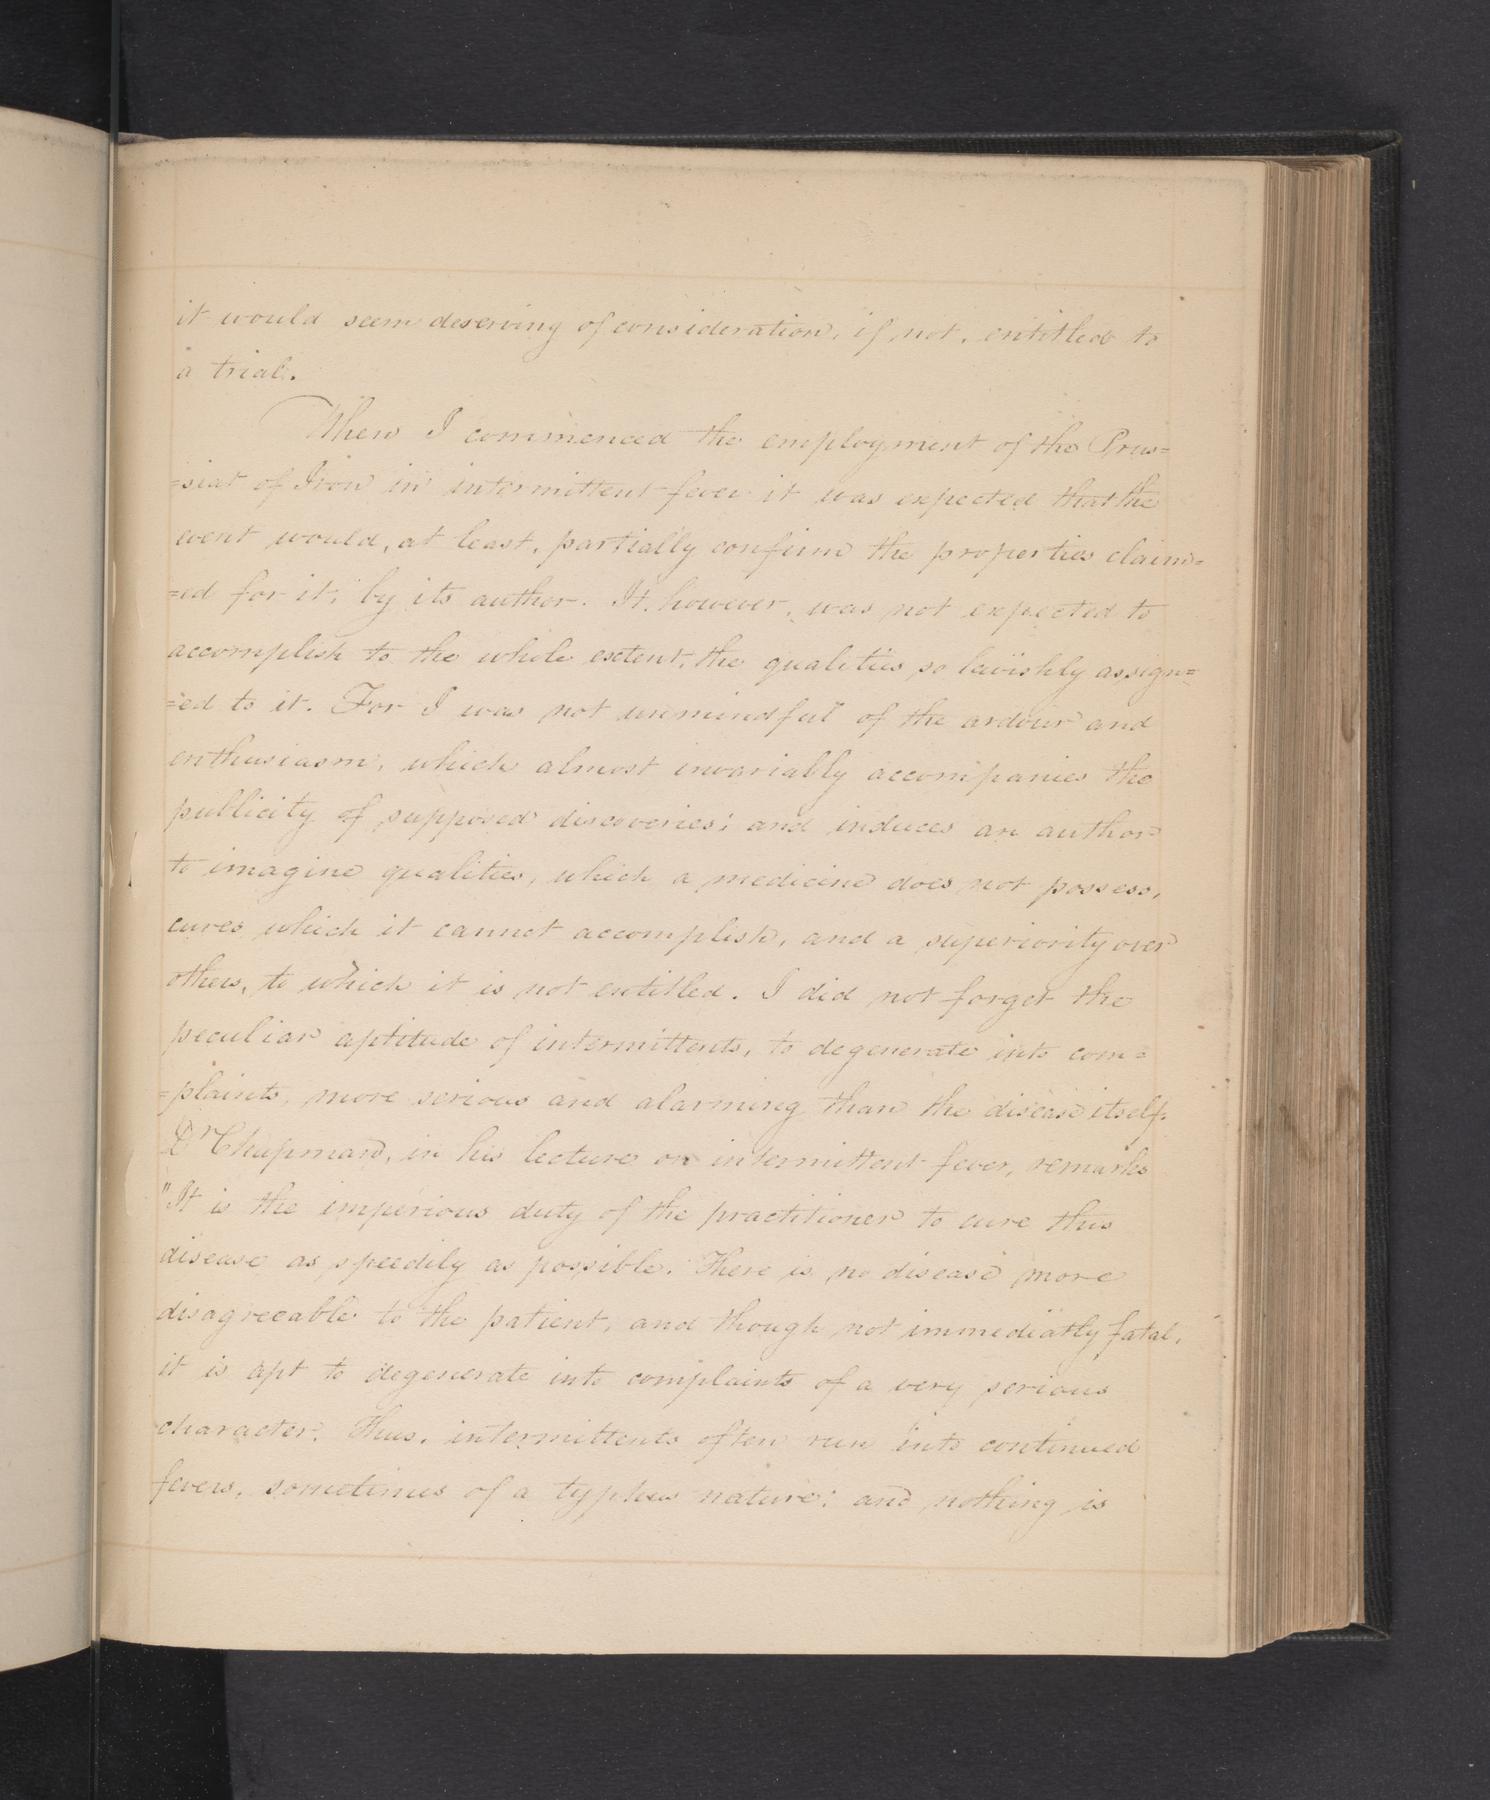 it would seem deserving of consideration, if not, entitled to
a trial.
When I commenced the employment of the Prus=
=siat of Iron in intermittent fever it was expected that the
event would, at least, partially confirm the properties claim=
=ed for it, by its author. It, however, was not expected to
accomplish to the whole extent, the qualities so lavishly assign=
=ed to it. For I was not unmindful of the ardour and
enthusiasm, which almost invariably accompanies the
publicity of supposed discoveries; and induces an author
to imagine qualities, which a medicine does not possess,
cures which it cannot accomplish, and a superiority over
others, to which it is not entitled. I did not forget the
peculiar aptitude of intermittents, to degenerate into com=
=plaints, more serious and alarming than the disease itself.
Dr Chapman, in his lecture on intermittent fever, remarks
"It is the imperious duty of the practitioner to cure this
disease as speedily as possible. There is no disease more
disagreeable to the patient, and though not immediatly fatal,
it is apt to degenerate into complaints of a very serious
character. Thus, intermittents often run into continued
fevers, sometimes of a typhus nature: and nothing is